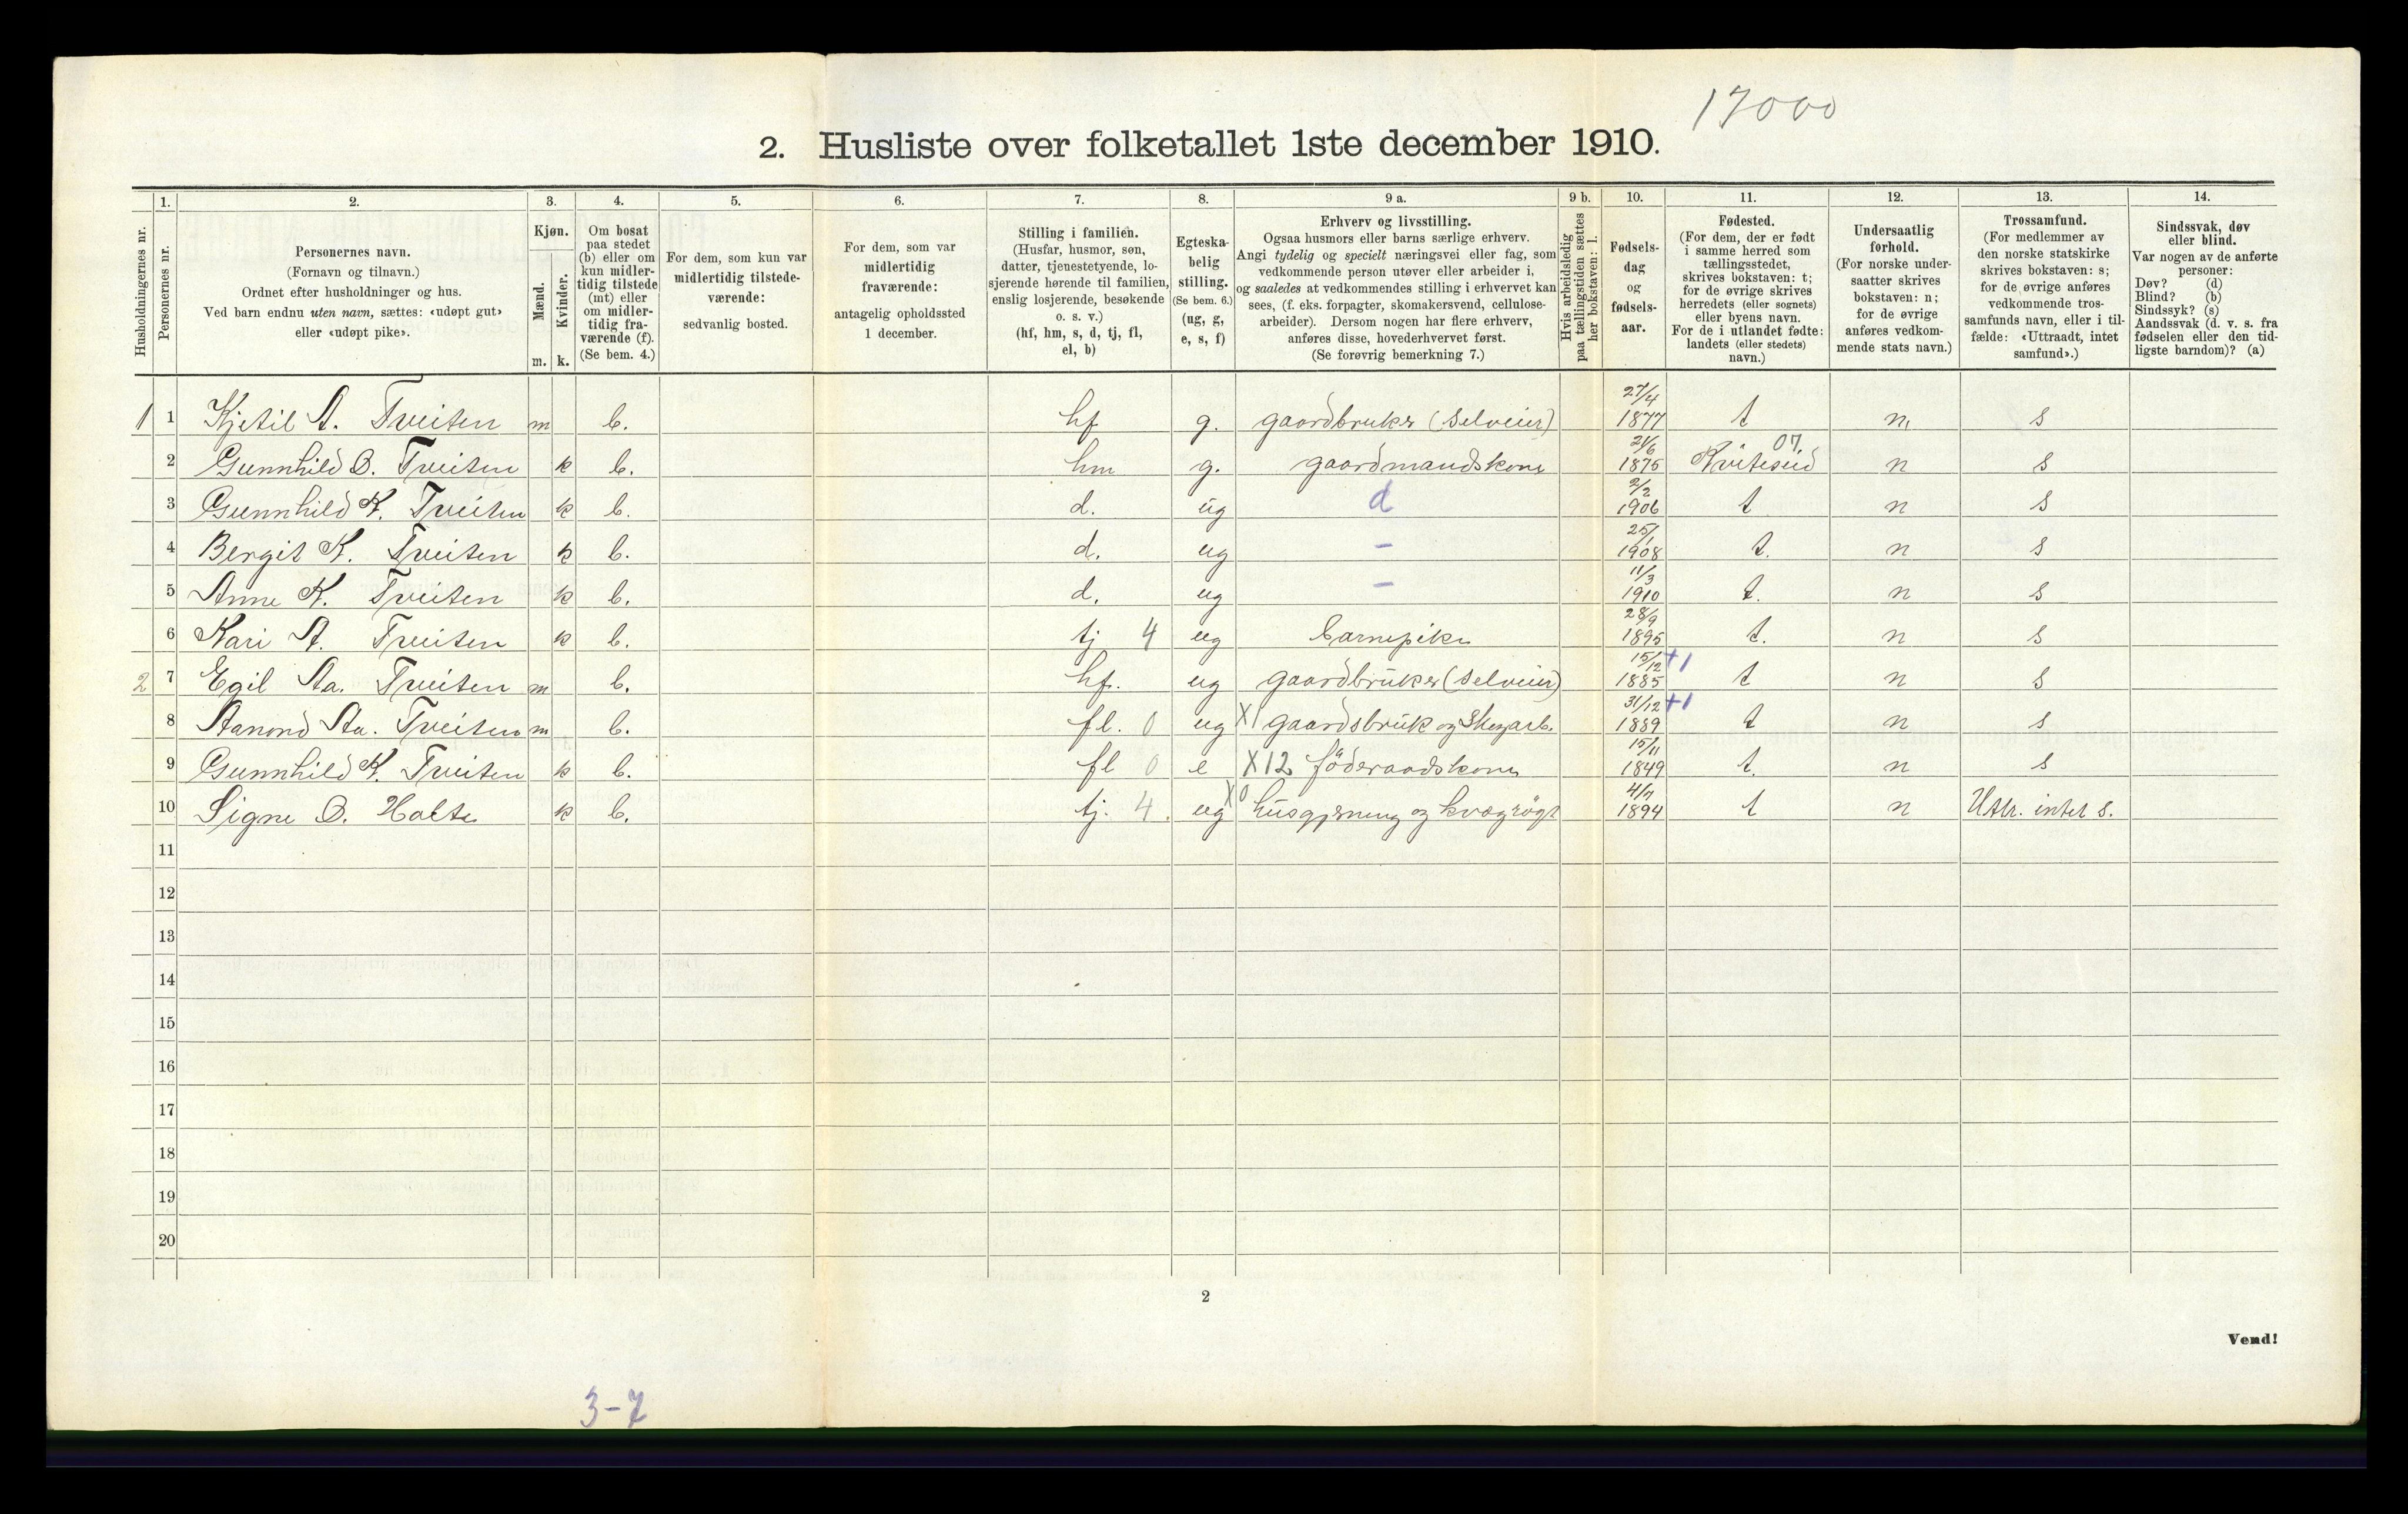 17000
2. Husliste over folketallet 1ste december 1910.
1. 2. 3. 4. 5. 6. 7. 8. 9 a. 9 b. 10. 11. 12. 13. 14.
Husholdningernes nr.
Personernes nr.
Personernes navn.
(Fornavn og tilnavn.)
Ordnet efter husholdninger og hus.
Ved barn endnu uten navn, sættes: «udøpt gut»
eller «udøpt pike».
Kjøn.
Mænd.
m.
Kvinder.
k.
Om bosat
paa stedet
(b) eller om
kun midler-
tidig tilstede
(mt) eller
om midler-
tidig fra-
værende (f).
(Se bem. 4.)
For dem, som kun var
midlertidig tilstede-
værende:
sedvanlig bosted.
For dem, som var
midlertidig
fraværende:
antagelig opholdssted
1 december.
Stilling i familien.
(Husfar, husmor, søn,
datter, tjenestetyende, lo-
sjerende hørende til familien,
enslig losjerende, besøkende
o. s. v.)
(hf, hm, s, d, tj, fl,
el, b)
Egteska-
belig
stilling.
(Se bem. 6.)
(ug, g,
e, s, f)
Erhverv og livsstilling.
Ogsaa husmors eller barns særlige erhverv.
Angi tydelig og specielt næringsvei eller fag, som
vedkommende person utøver eller arbeider i,
og saaledes at vedkommendes stilling i erhvervet kan
sees, (f. eks. forpagter, skomakersvend, cellulose-
arbeider). Dersom nogen har flere erhverv,
anføres disse, hovederhvervet først.
(Se forøvrig bemerkning 7.)
Hvis arbeidsledig
paa tællingstiden sættes
her bokstaven: l.
Fødsels-
dag
og
fødsels-
aar.
Fødested.
(For dem, der er født
i samme herred som
tællingsstedet,
skrives bokstaven: t;
for de øvrige skrives
herredets (eller sognets)
eller byens navn.
For de i utlandet fødte:
landets (eller stedets)
navn.)
Undersaatlig
forhold.
(For norske under-
saatter skrives
bokstaven: n;
for de øvrige
anføres vedkom-
mende stats navn.)
Trossamfund.
(For medlemmer av
den norske statskirke
skrives bokstaven: s;
for de øvrige anføres
vedkommende tros-
samfunds navn, eller i til-
fælde: «Uttraadt, intet
samfund».)
Sindssvak, døv
eller blind.
Var nogen av de anførte
personer:
Døv? (d)
Blind? (b)
Sindssyk? (s)
Aandssvak (d. v. s. fra
fødselen eller den tid-
ligste barndom)? (a)
1 1 Kjetil A. Tveiten m b. hf g. gaardbruker (selveier) 27/4 1877 t n, s
2 Gunnhild O. Tveiten k b. hm g. gaardmandskone 21/6 1875 Kviteseid 07 n s
3 Gunnhild K. Tveiten k b. d. ug d 2/2 1906 t n s
4 Bergit K. Tveiten k b. d. ug - 25/1 1908 t. n s
5 Anne K. Tveiten k b. d. ug - 11/3 1910 t. n s
6 Kari A. Tveiten k b. tj 4 ug barnepike 28/9 1895 t. n s
2 7 Egil Aa. Tveiten m b. hf. ug gaardbruker (selveier) 15/12 1885 +1 t n s
8 Aanond Aa. Tveiten m b. fl. 0 ug X1 gaardsbruk og Skogarb. 31/12 1889 +1 t n s
9 Gunnhild K. Tveiten k b. fl 0 e X12 föderaadskone 15/11 1849 t. n s
10 Signe O. Holte k b. tj. 4. ug X0 husgjerning og kvægrögt 4/7 1894 t n Uttr. intet s.
11
12
13
14
15
16
17
18
19
20
2
Vend!
3-7